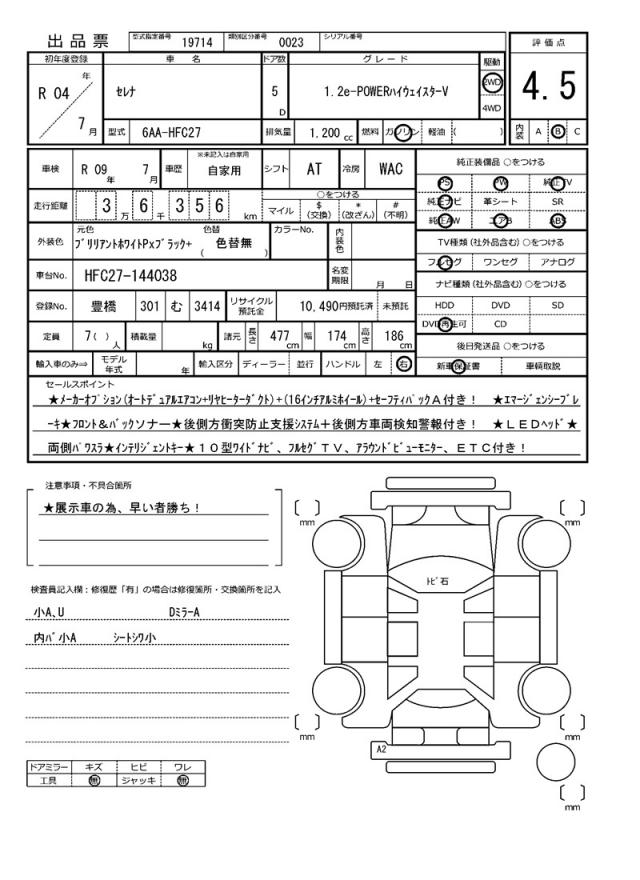 出品票 型式指定番号 19714 類別区分番号 0023 シリアル番号
評価点
4.5
内装 A B C
初年度登録 車名 ドア数 グレード 駆動
R 04 年 7 月 セレナ 5 D 1.2e-POWERハイウェイスターV 2WD 4WD
型式 6AA-HFC27 排気量 1.200 cc 燃料 ガソリン 軽油 ( )
車検 R 09 年 7 月 車歴 ※未記入は自家用 自家用 シフト AT 冷房 WAC
走行距離 3 万 6 千 3 5 6 km
○をつける
マイル $ (交換) * (改ざん) # (不明)
外装色 元色 ブリリアントホワイトPxブラック+ 色替 ( 色替無 ) カラーNo. 内装色
車台No. HFC27-144038 名変期限 月 日
登録No. 豊橋 301 む 3414 リサイクル預託金 10,490円預託済 未預託
定員 7( ) 人 積載量 kg 諸元 長さ 477 cm 幅 174 cm 高さ 186 cm
輸入車のみ⇒ モデル年式 年 輸入区分 ディーラー 並行 ハンドル 左 右
純正装備品 ○をつける
PS PW 純正TV
純正ナビ 革シート SR
純正AW エアB ABS
TV種類 (社外品含む) ○をつける
フルセグ ワンセグ アナログ
ナビ種類 (社外品含む) ○をつける
HDD DVD SD
DVD再生可 CD
後日発送品 ○をつける
新車保証書 車輌取説
セールスポイント
★メーカーオプション(オートデュアルエアコン+リヤヒーターダクト)+(16インチアルミホイール)+セーフティパックA付き! ★エマージェンシーブレ
ーキ★フロント&バックソナー★後側方衝突防止支援システム+後側方車両検知警報付き! ★LEDヘッド★
両側パワスラ★インテリジェントキー★10型ワイドナビ、フルセグTV、アラウンドビューモニター、ETC付き!
注意事項・不具合箇所
★展示車の為、早い者勝ち!
検査員記入欄:修復歴「有」の場合は修復箇所・交換箇所を記入
小A、U DミラーA
内バ小A シートシワ小
ドアミラー キズ ヒビ ワレ
工具 無 ジャッキ 無
mm
mm
トビ石
mm
mm
A2
mm